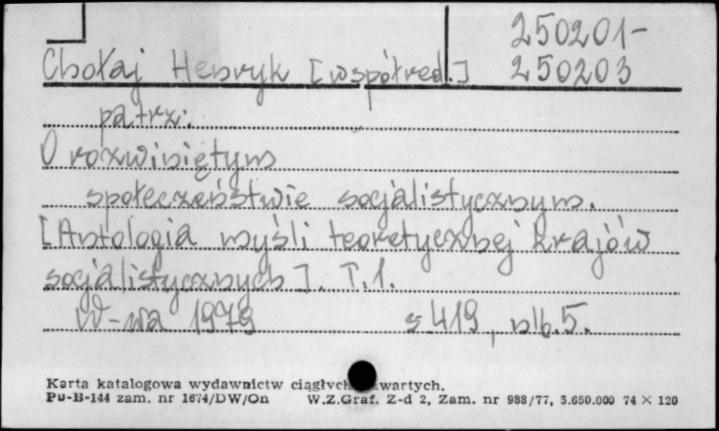 250201-
Chołaj Henryk [współred.] 250203
patrz:
O rozwiniętym
społeczeństwie socjalistycznym.
[Antologia myśli teoretycznej krajów
socjalistycznych]. T.1.
W-wa 1979 s 419, nlb.5.
Karta katalogowa wydawnictw ciągłych wartych.
Pu-B-144 zam. nr 1674/DW/On W.Z.Graf. Z-d 2, Zam. nr 988/77, 3.650.000 74 × 120